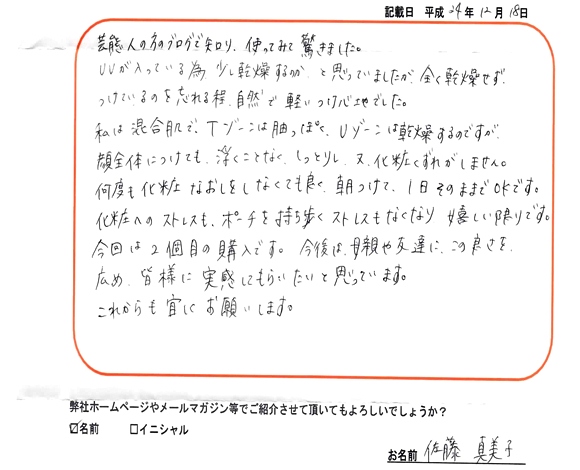 記載日 平成 24年 12月 18日
芸能人の方のブログで知り、使ってみて驚きました。
UVが入っている為 少し乾燥するのか、と思っていましたが、全く乾燥せず、
つけているのを忘れる程、自然で軽いつけ心地でした。
私は混合肌で、Tゾーンは油っぽく、Uゾーンは乾燥するのですが、
顔全体につけても、浮くことなく、しっとりし、又、化粧くずれがしません。
何度も化粧なおしをしなくても良く、朝つけて、1日そのままでOKです。
化粧へのストレスも、ポーチを持ち歩くストレスもなくなり 嬉しい限りです。
今回は2個目の購入です。今後は、母親や友達に、この良さを、
広め、皆様に実感してもらいたいと思っています。
これからも宜しくお願いします。
弊社ホームページやメールマガジン等でご紹介させて頂いてもよろしいでしょうか？
☑名前 □イニシャル
お名前 佐藤 真美子